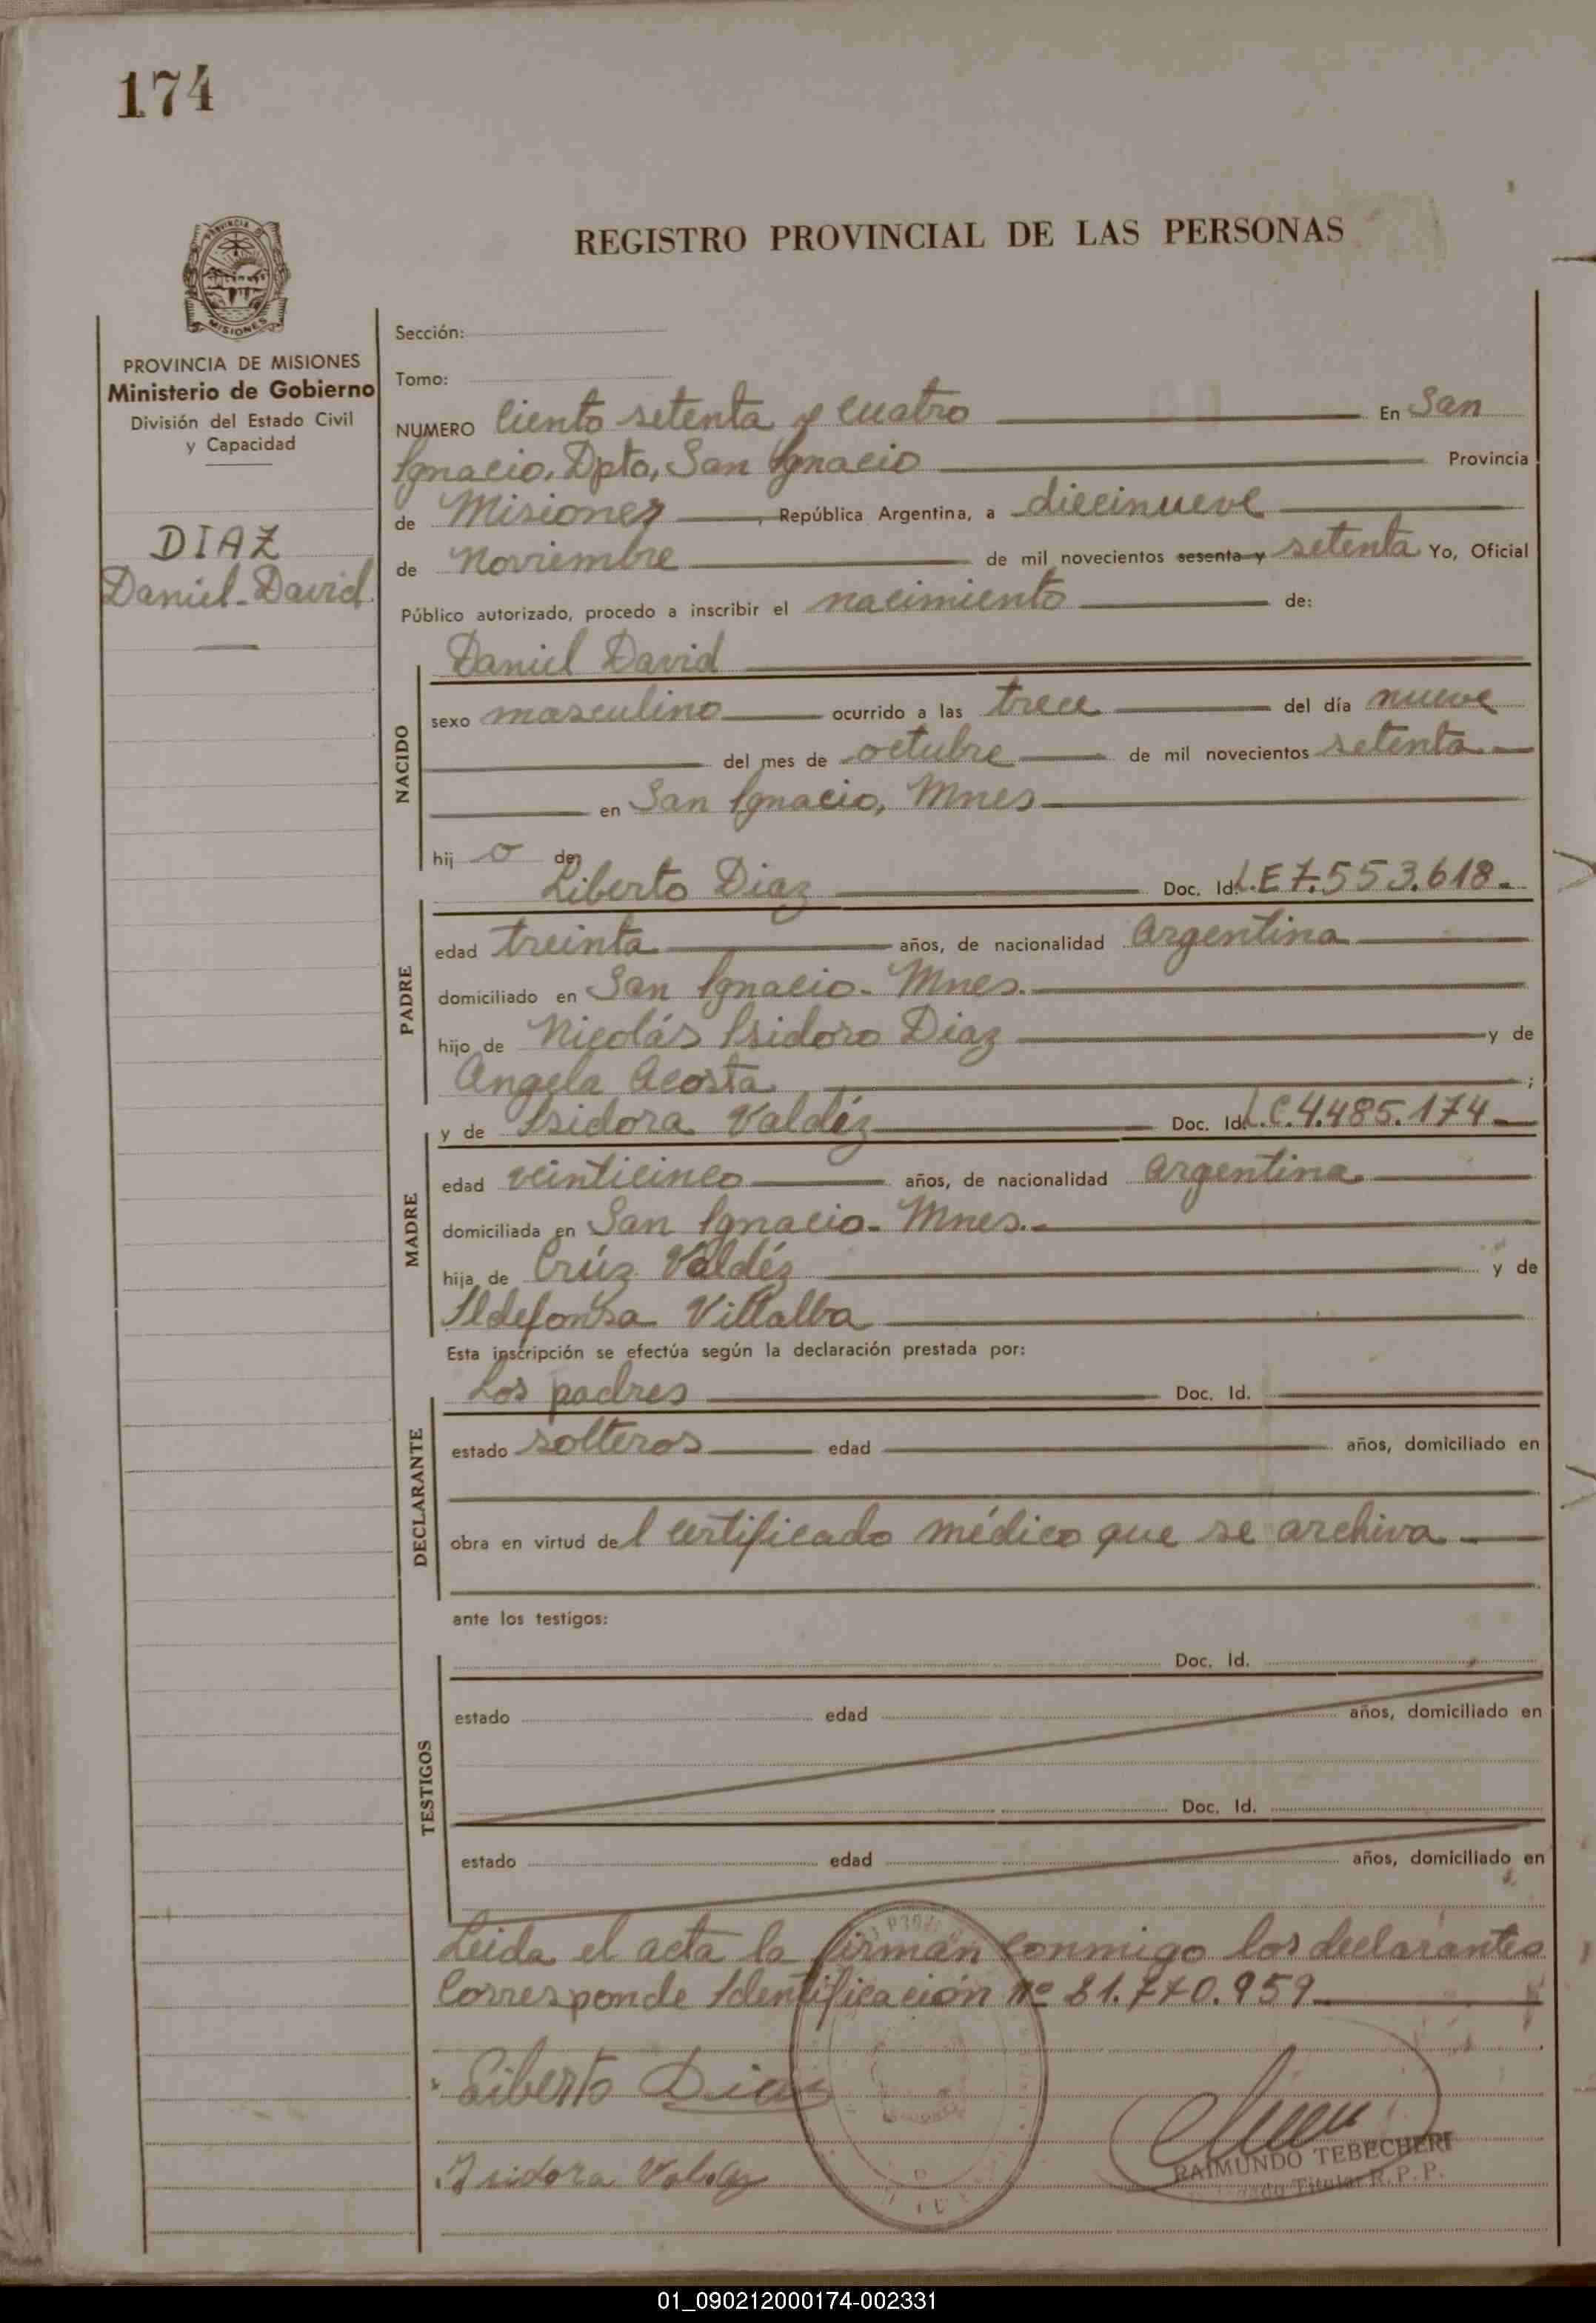 174
REGISTRO PROVINCIAL DE LAS PERSONAS
MISIONES
PROVINCIA DE MISIONES
Ministerio de Gobierno
División del Estado Civil
y Capacidad
DIAZ
Daniel-David
Sección:
Tomo:
NUMERO Ciento setenta y cuatro En San
Ignacio, Dpto, San Ignacio Provincia
de Misiones, República Argentina, a diecinueve
de Noviembre de mil novecientos sesenta y setenta Yo, Oficial
Público autorizado, procedo a inscribir el nacimiento de:
NACIDO
Daniel David
sexo masculino ocurrido a las trece del día nueve
del mes de octubre de mil novecientos setenta
en San Ignacio, Mnes
hij o de
PADRE
Liberto Diaz Doc. Id. L.E 7.553.618.
edad treinta años, de nacionalidad Argentina
domiciliado en San Ignacio- Mnes.
hijo de Nicolás Isidoro Diaz y de
Angela Acosta ;
MADRE
y de Isidora Valdéz Doc. Id. L.C. 4.485.174
edad veinticinco años, de nacionalidad Argentina
domiciliada en San Ignacio- Mnes.-
hija de Crúz Valdéz y de
Ildefonsa Villalba
Esta inscripción se efectúa según la declaración prestada por:
DECLARANTE
Los padres Doc. Id.
estado solteros edad años, domiciliado en
obra en virtud del certificado médico que se archiva
ante los testigos:
TESTIGOS
Doc. Id.
estado edad años, domiciliado en
Doc. Id.
estado edad años, domiciliado en
Leida el acta la firman conmigo los declarantes
Corresponde Identificación nº 21.770.959
Liberto Diaz
Isidora Valdez
RAIMUNDO TEBECHERI
Titular R.P.P.
01_090212000174-002331